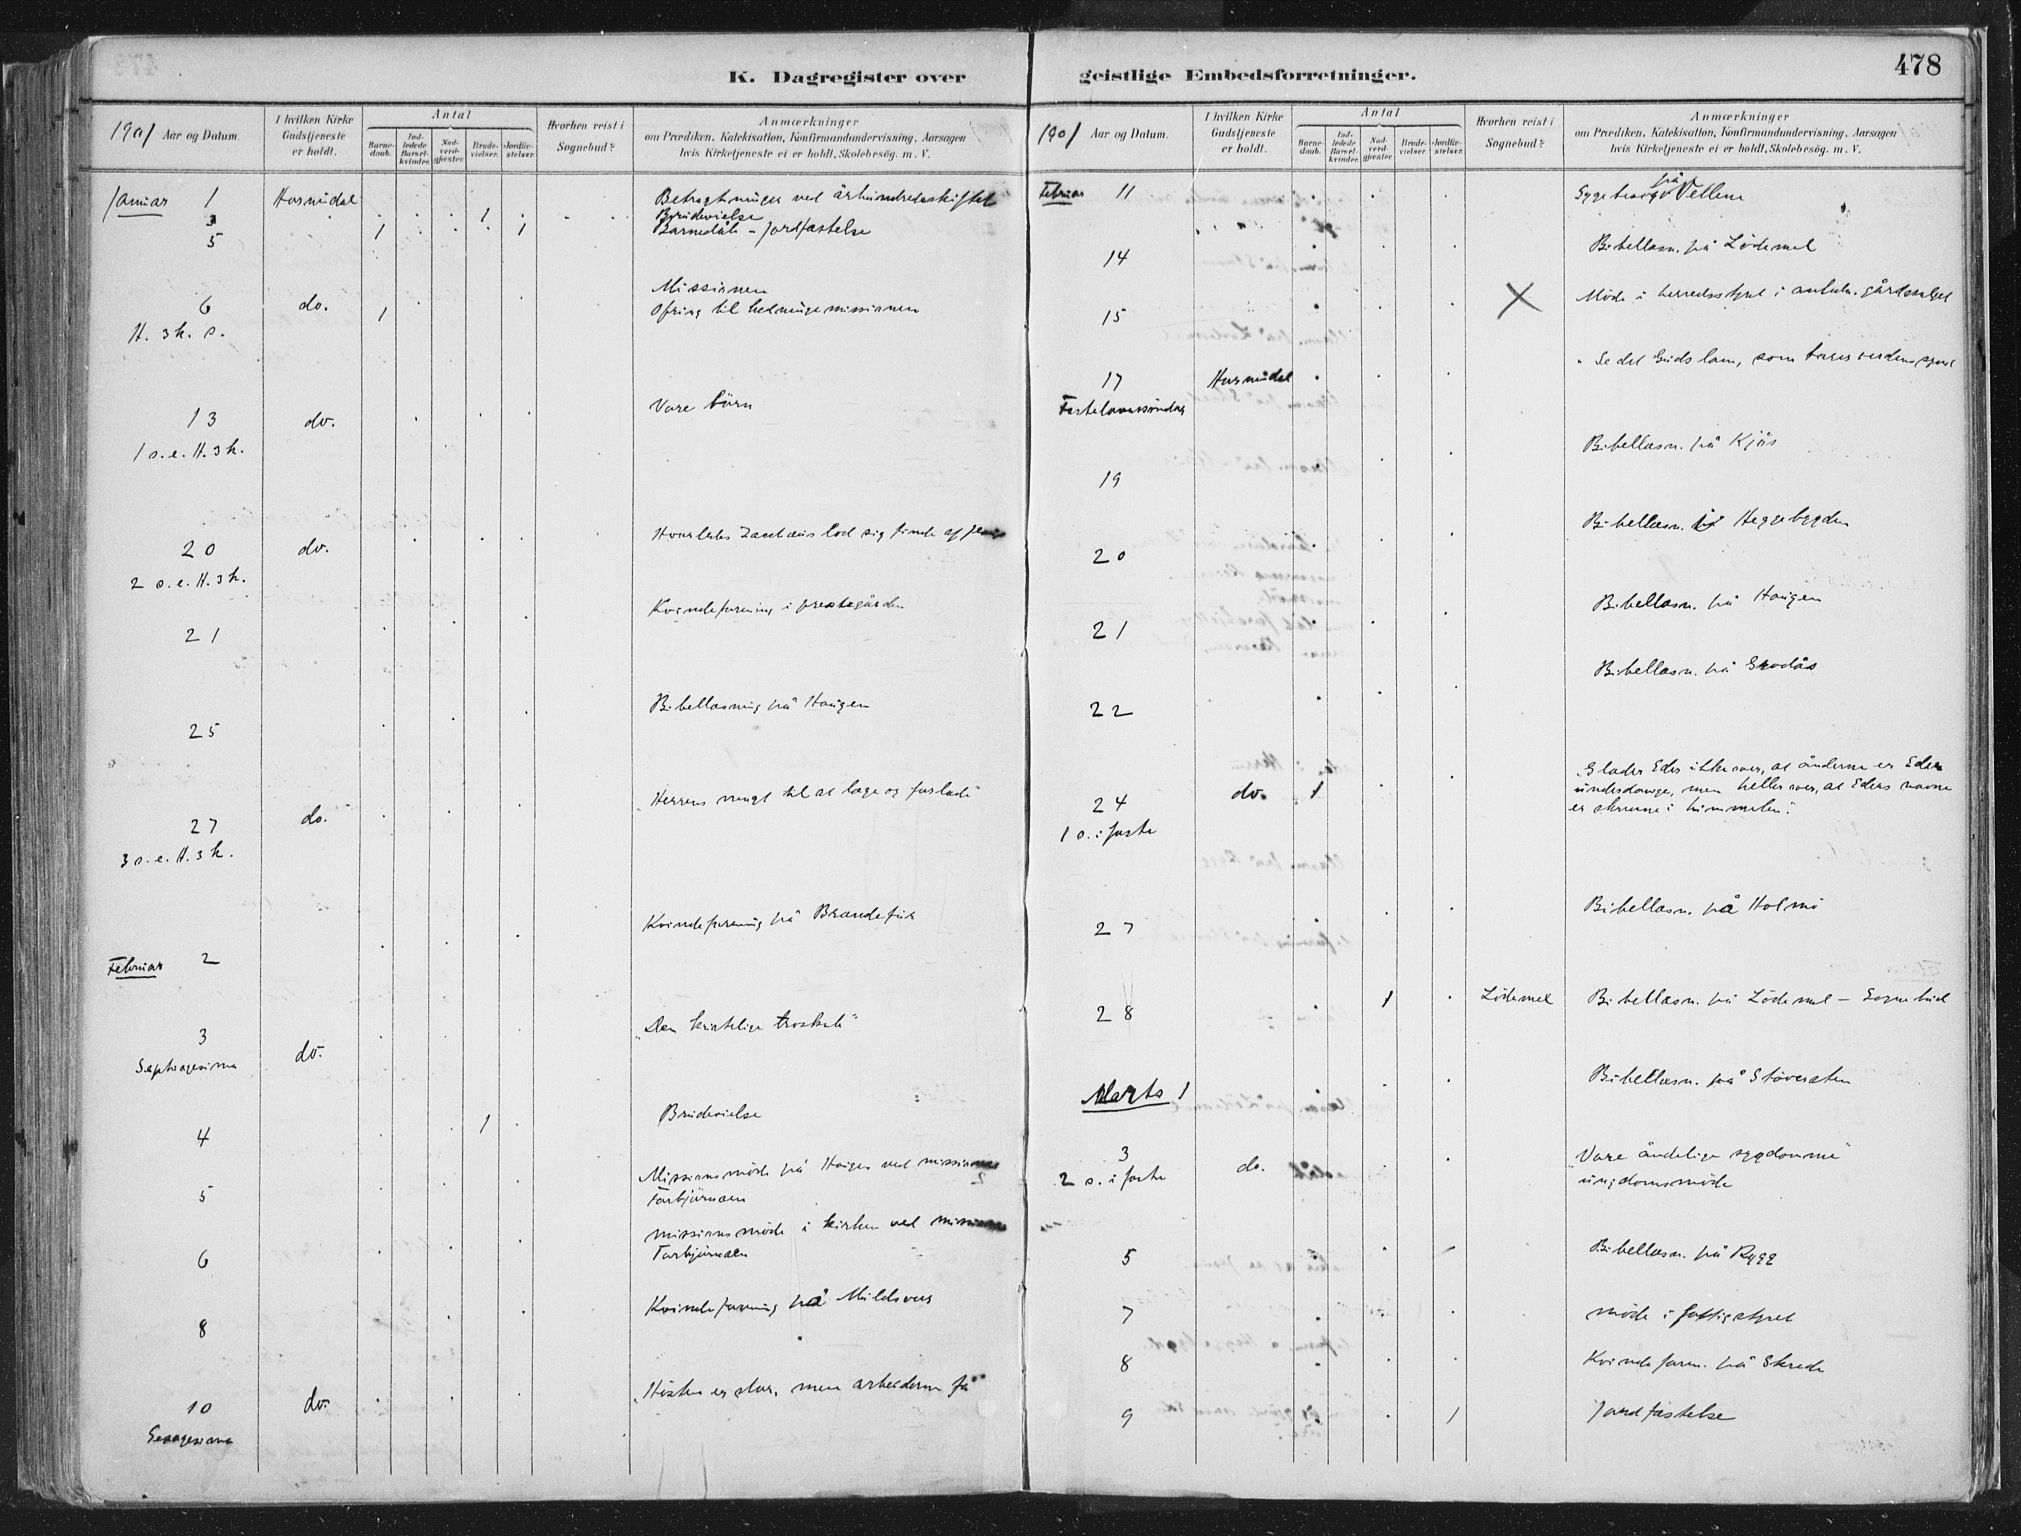 K. Dagregister over
1901 Aar og Datum.
I hvilken Kirke Gudstjeneste er holdt.
Antal
Barne-daab.
Ind-ledede Barsel-kvinder.
Nad-verd-gjester.
Brude-vielser.
Jordfæ-stelser.
Hvorhen reist i Sognebud?
Anmærkninger
om Prædiken, Katekisation, Konfirmandundervisning, Aarsagen
hvis Kirketjeneste ei er holdt, Skolebesög. m. V.
Januar 1 Hornindal Betragtninger ved århundredeskiftet
3 1 Brudevielse
5 1 1 Barnedåb - jordfæstelse
Missionen
6 do. 1 Ofring til hedningemissionen
H. 3 k. s.
13 do. Vore börn
1 s.e. H. 3 k.
20 do. Hvorledes Zacchæus lod sig finde af Jesus
2 s.e. H. 3 k.
21 Kvindeforening i prestegården
25 Bibellæsning på Haugen
27 do. "Herrens magt til at læge og forlade"
3 s.e. H. 3 k.
Februar 2 Kvindeforening på
3 do. "Den kristelige troskab"
Septuagesima
4 1 Brudevielse
5 Missionsmöde på Haugen ved missionær
Torbjörnsen
6 missionsmöde i kirken ved missionær
Torbjörnsen
8 Kvindeforening på
10 do. "Hösten er stor, men arbeiderne få"
Sexagesima
geistlige Embedsforretninger.
478
1901 Aar og Datum.
I hvilken Kirke Gudstjeneste er holdt.
Antal
Barne-daab.
Ind-ledede Barsel-kvinder.
Nad-verd-gjester.
Brude-vielser.
Jordfæ-stelser.
Hvorhen reist i Sognebud?
Anmærkninger
om Prædiken, Katekisation, Konfirmandundervisning, Aarsagen
hvis Kirketjeneste ei er holdt, Skolebesög. m. V.
Februar 11 Sygebesög på
14 Bibellæsn. på Lödemel
15 Möde i herredsstyret i gårdsalget
17 Hornindal "Se det Guds lam, som bærer verdens synd
Fastelavnssöndag
19 Bibellæsn. på Kjös
20 Bibellæsn. i Heggebygden
21 Bibellæsn. på Haugen
22 Bibellæsn. på Grodås
24 do. 1 "Glæder Eder ikke over, at ånderne er Eder
underdanige, men heller over, at Eders navne
er skrevne i himmelen".
1 s. i faste
27 Bibellæsn. på Holmö
28 1 Lödemel Bibellæsn. på Lödemel - Sognebud
Marts 1 Bibellæsn. på Stöversten
3 do. "Vore åndelige sygdomme"
2 s. i faste ungdomsmöde
5 Bibellæsn. på Rygg
7 möde i fattigstyret
8 Kvindeforen. på Skrede
9 1 Jordfæstelse